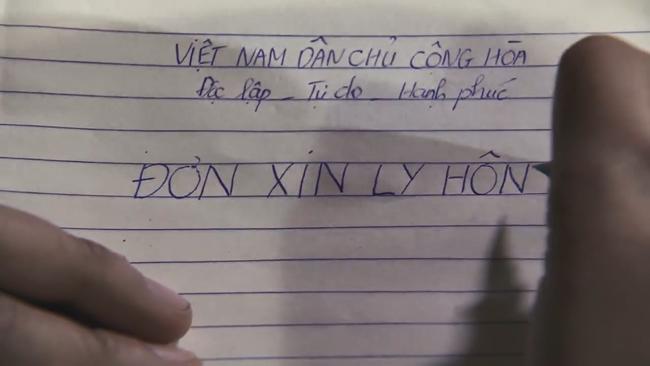 VIỆT NAM DÂN CHỦ CỘNG HÒA
Độc lập - Tự do - Hạnh phúc
ĐƠN XIN LY HÔN